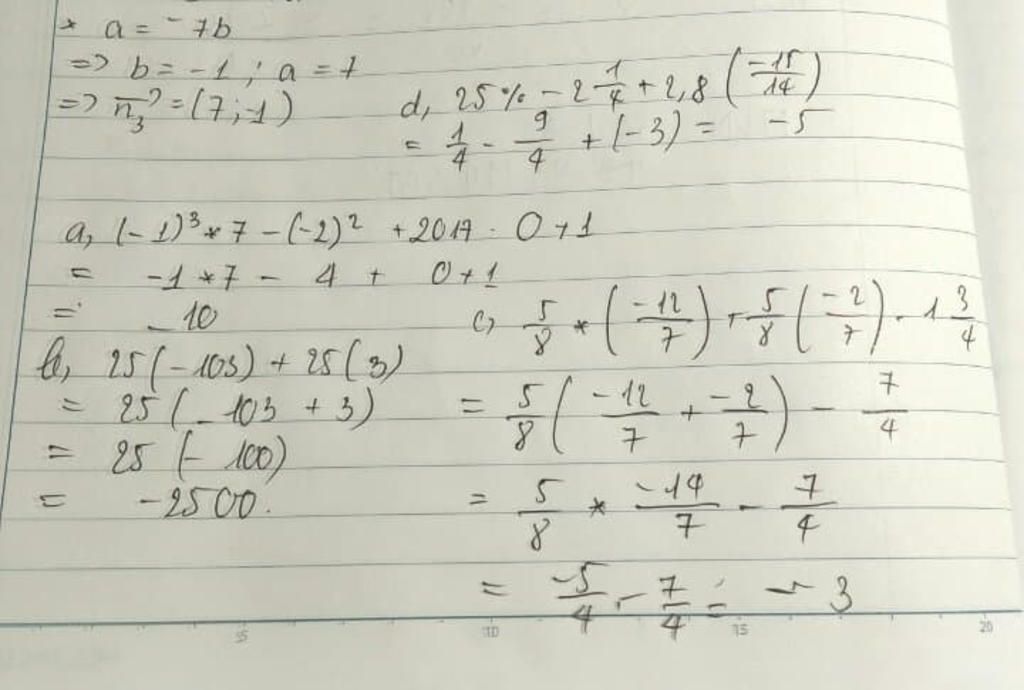 * a = -7b
=> b = -1 ; a = 7
=> n₃ = (7;-1)
d, 25% - 2 1/4 + 2,8 (-15/14)
= 1/4 - 9/4 + (-3) = -5
a, (-1)³ * 7 - (-2)² + 2017 . 0 + 1
= -1 * 7 - 4 + 0 + 1
= -10
b, 25(-103) + 25(3)
= 25(-103 + 3)
= 25(-100)
= -2500.
c, 5/8 * (-12/7) + 5/8 (-2/7) - 1 3/4
= 5/8 (-12/7 + -2/7) - 7/4
= 5/8 * -14/7 - 7/4
= -5/4 - 7/4 = -3
5
10
15
20